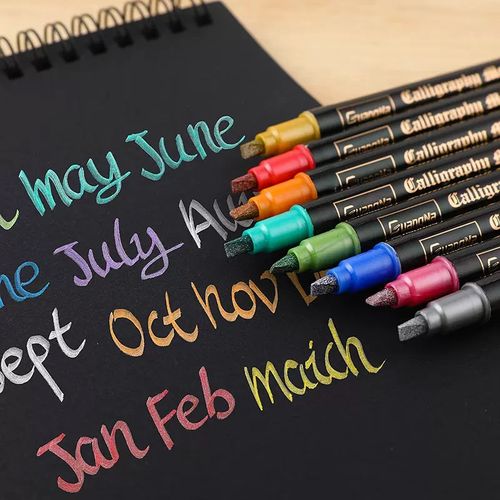 may June
July
Sept Oct Nov
Jan Feb maich
GuangNa Calligraphy
GuangNa Calligraphy
GuangNa Calligraphy
GuangNa Calligraphy
GuangNa Calligraphy
GuangNa Calligraphy